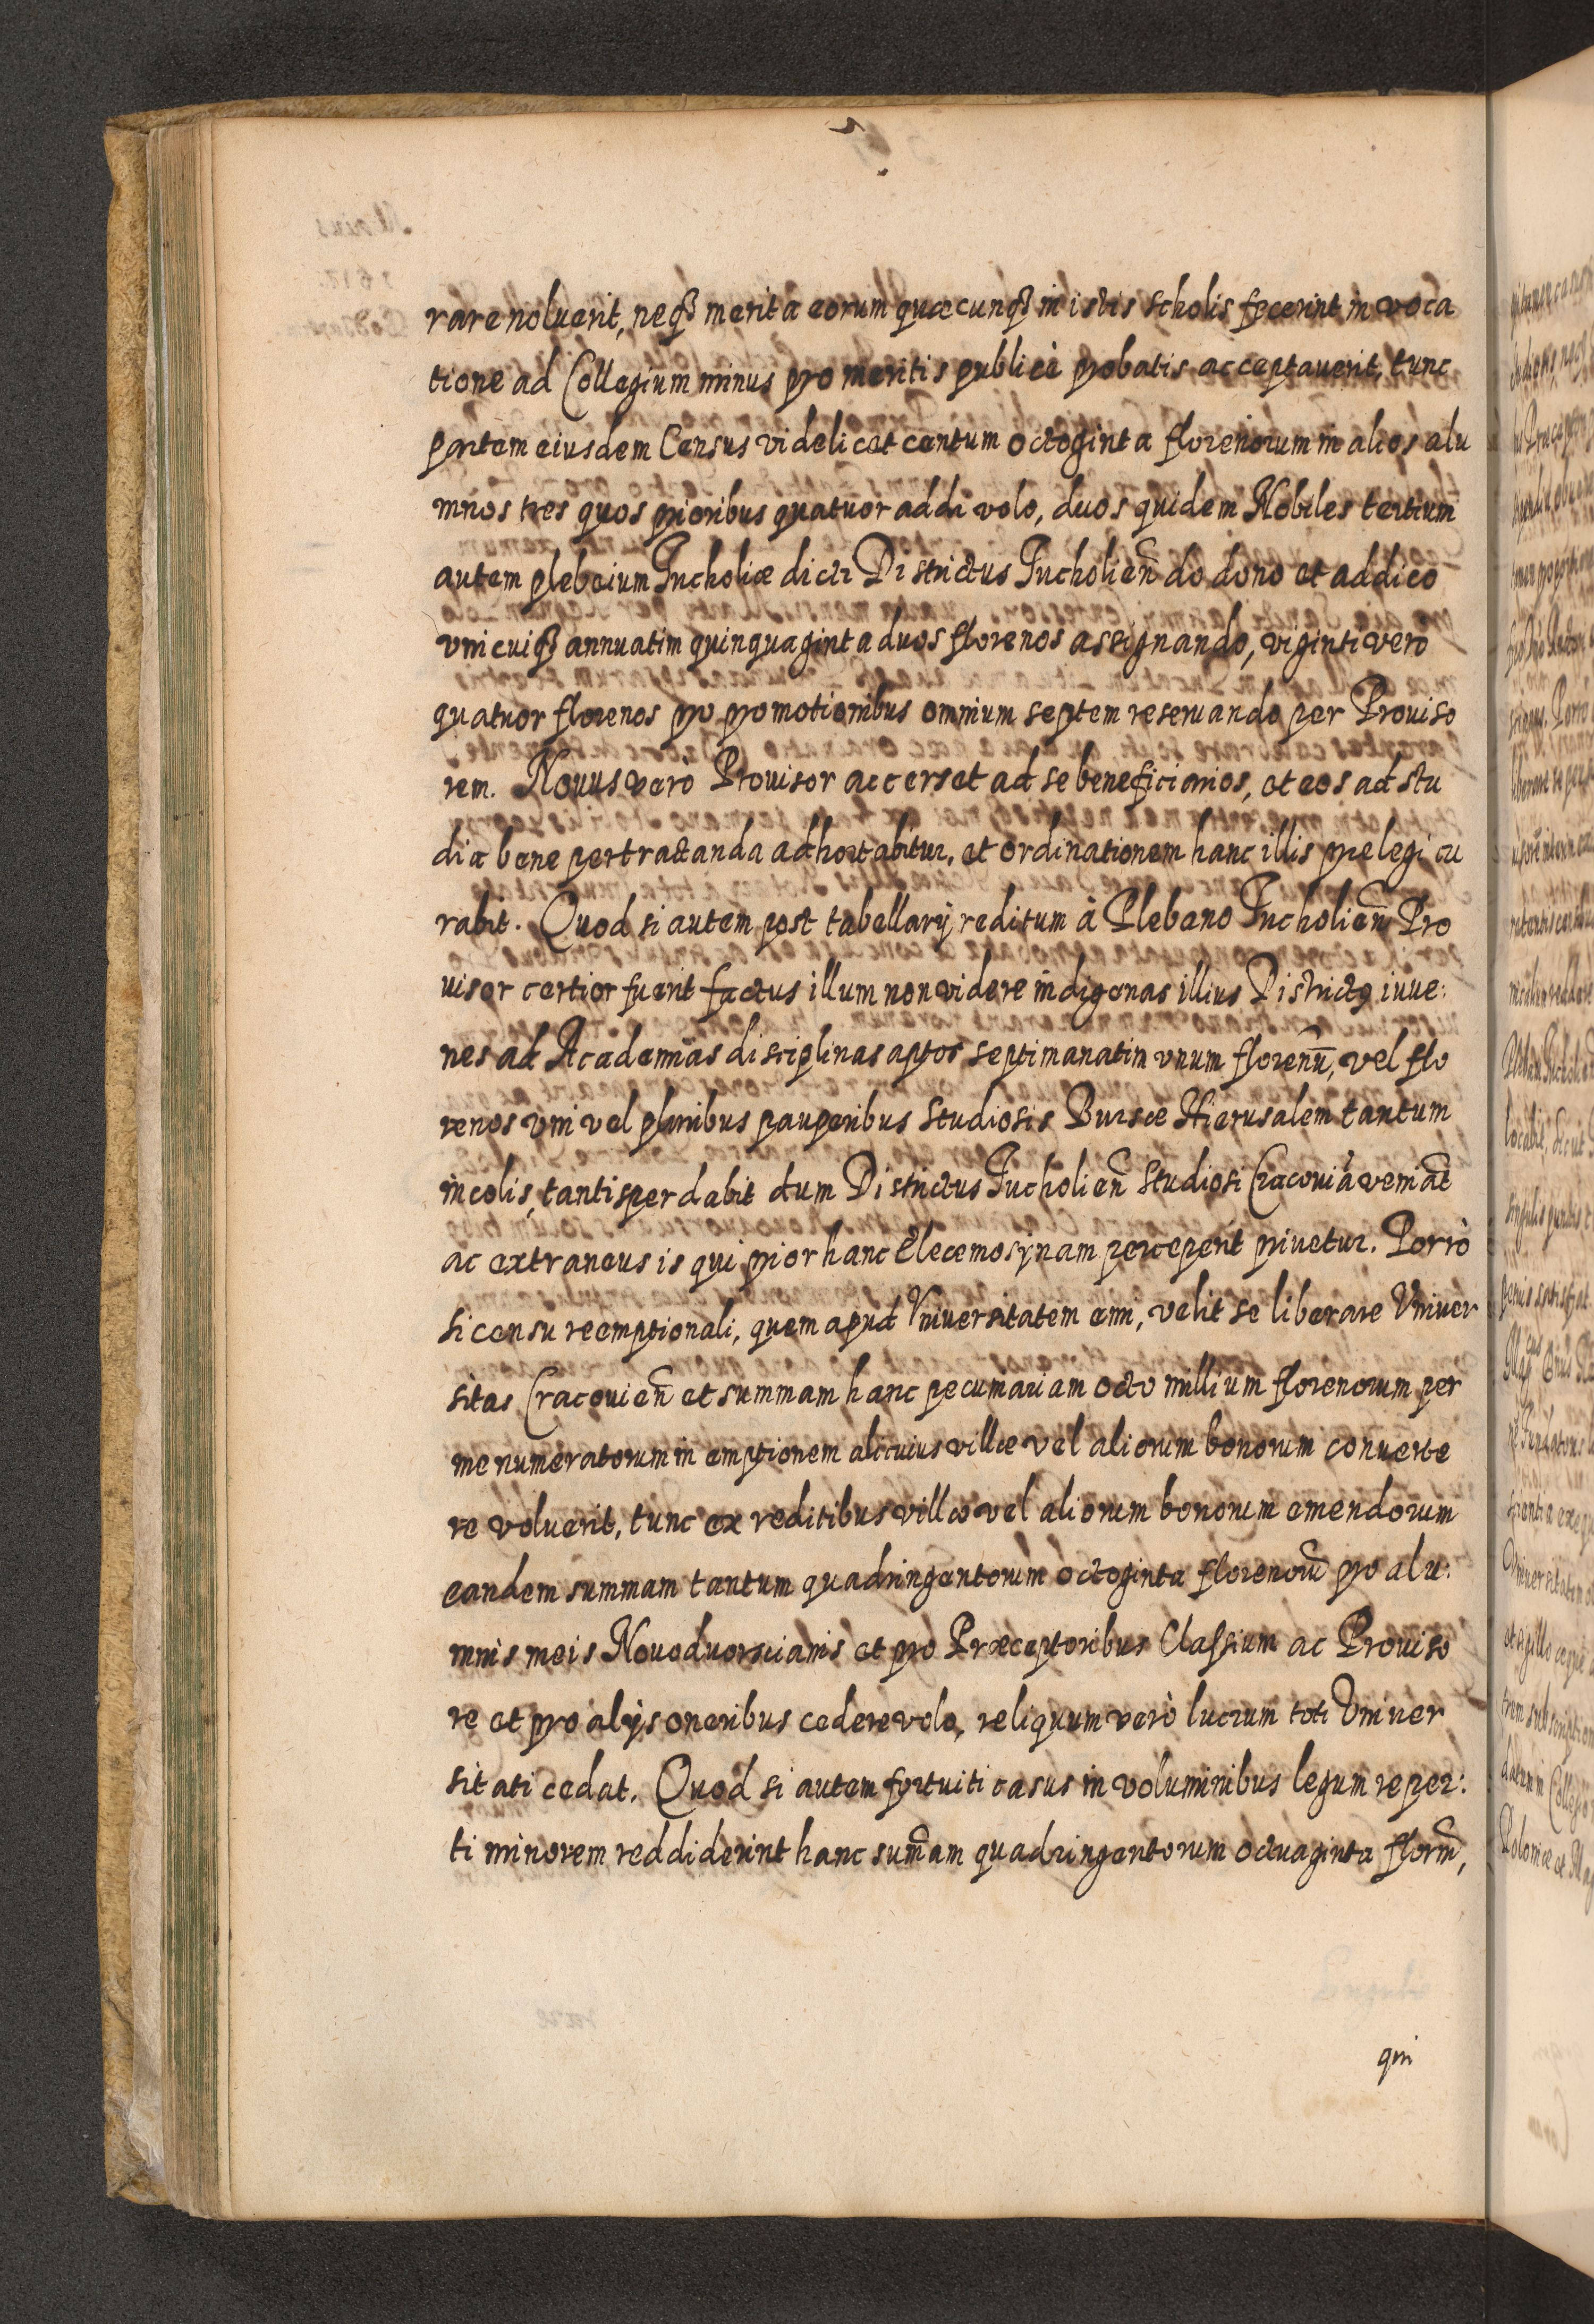 rare noluerit, neqꝫ merita eorum quæcunqꝫ in istis scholis fecerint in voca
tione ad Collegium minus pro meritis publicè probatis acceptauerit, tunc
partem eiusdem Census videlicet centum octoginta florenorum in alios alu
mnos tres quos prioribus quatuor addi volo, duos quidem Nobiles tertium
autem plebeium Tucholiæ dicti Districtus Tucholien̄ do dono et addico
vnicuiqꝫ annuatim quinquaginta duos florenos assignando, viginti vero
quatuor florenos pro promotionibus omnium septem reseruando per Prouiso
rem. Nouus verò Prouisor accerset ad se beneficiarios, et eos ad stu
dia bene pertractanda adhortabitur, et ordinationem hanc illis prelegi cu
rabit. Quod si autem post tabellarij reditum à Plebano Tucholien̄ Pro
uisor certior fuerit factus illum non videre indigenas illius Districtꝰ iuue:
nes ad Academias disciplinas aptos septimanatim vnum florenū, vel flo
renos vni vel pluribus pauperibus Studiosis Bursæ Hierusalem tantum
incolis, tantisper dabit dum Districtus Tucholien̄ Studiosi Cracouiā veniāt
ac extraneus is qui prior hanc Elecemosÿnam perceperit priuetur. Porrò
si censu reemptionali, quem apud Vniuersitatem emi, velit se liberare Vniuer
sitas Cracouien̄ et summam hanc pecuniariam octo millium florenorum per
me numeratorum in emptionem alicuius villæ vel aliorum bonorum conuerte
re voluerit, tunc ex reditibus villæ vel aliorum bonorum emendorum
eandem summam tantum quadringentorum octoginta florenorū pro alu:
mnis meis Nouoduorscianis et pro Præceptoribus Classium ac Prouiso
re et pro alijs oneribus cedere volo, reliquum verò lucrum toti Vniuer
sitati cedat. Quod si autem fortuiti casus in voluminibus legum reper:
ti minorem reddiderint hanc sum̄am quadringentorum octuaginta florn̄,
qui